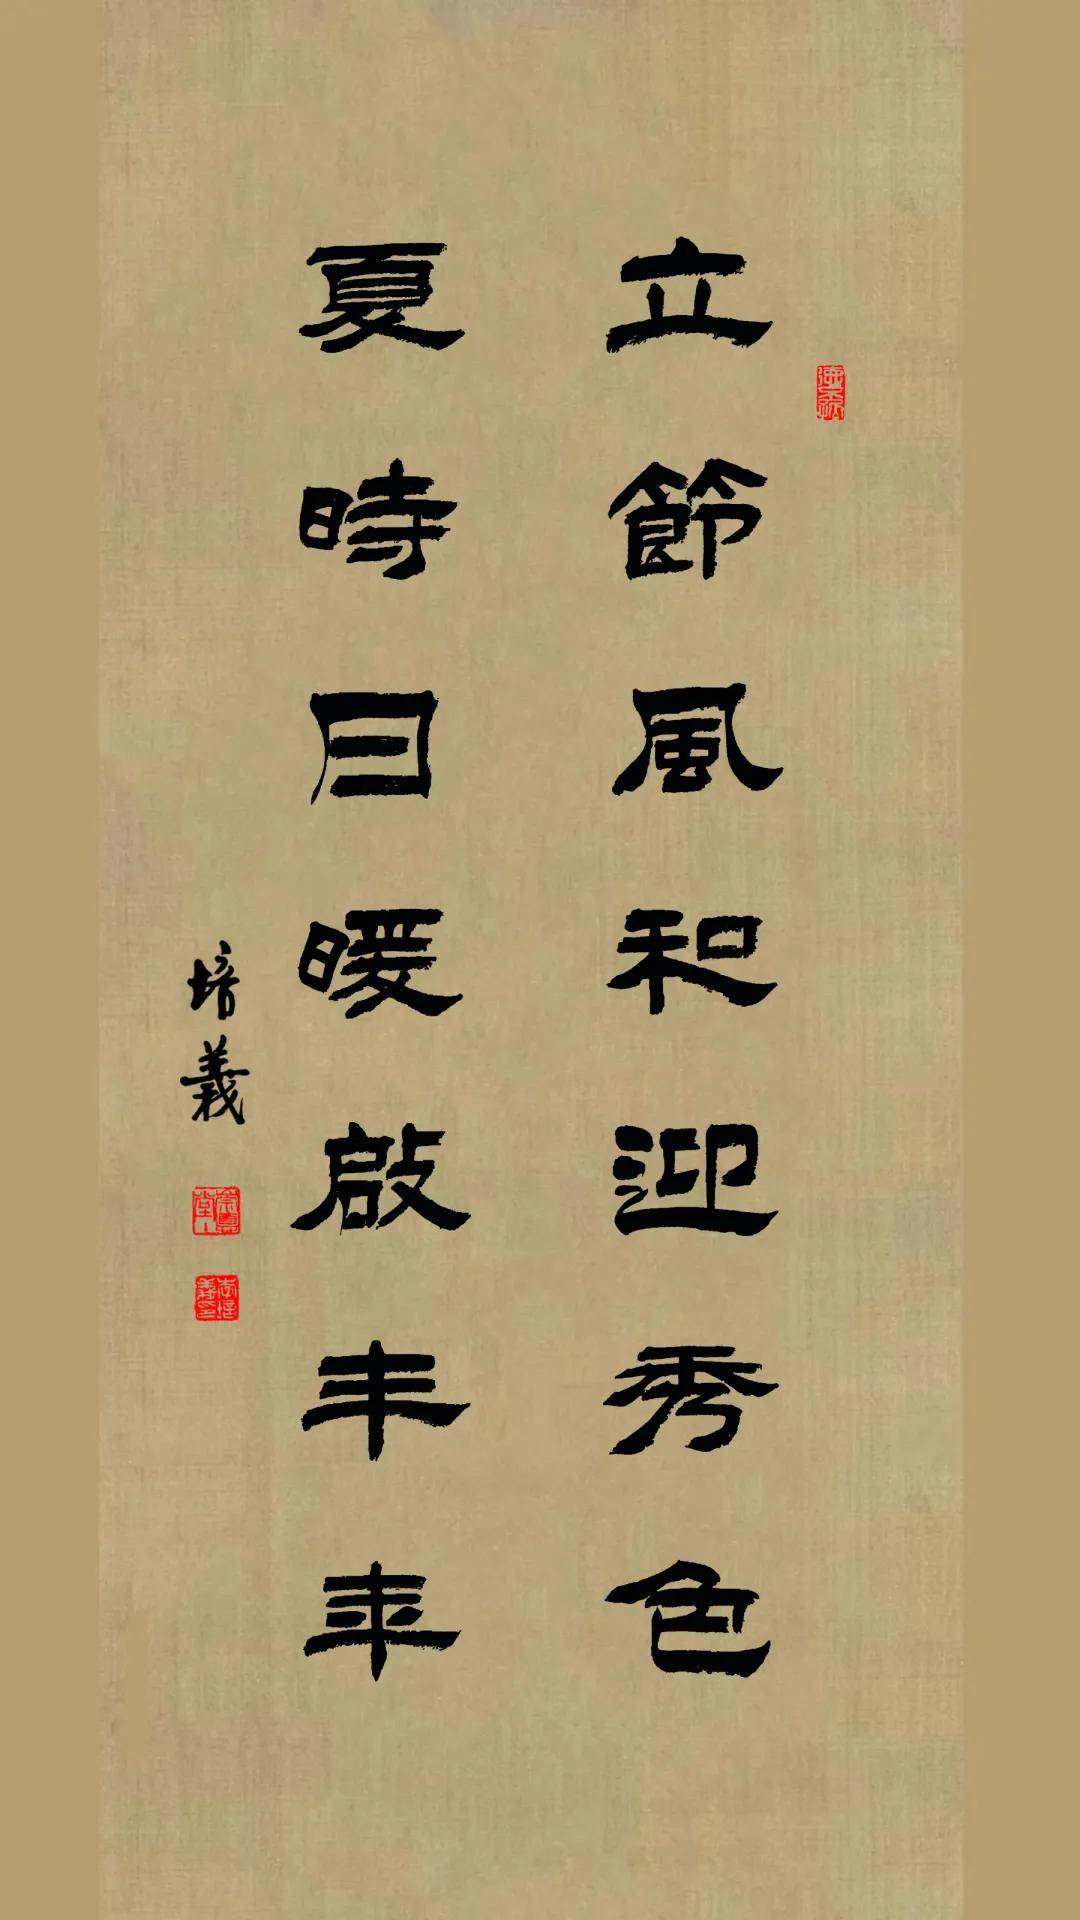 立節風和迎秀色
夏時日暖啟丰年
培義